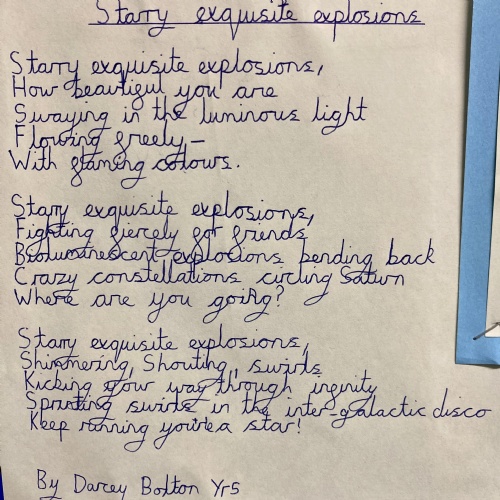 Starry exquisite explosions
Starry exquisite explosions,
How beautiful you are
Swaying in the luminous light
Flowing freely —
With flaming colours.
Starry exquisite explosions,
Fighting fiercely for friends
Bioluminescent explosions bending back
Crazy constellations circling Saturn
Where are you going?
Starry exquisite explosions,
Shimmering, Shouting, swirls
Kicking your way through infinity
Sprinting swirls in the inter-galactic disco
Keep running you're a star!
By Darcey Bolton Yr5